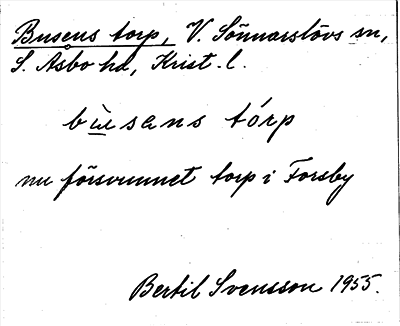 Busens torp, V. Sönnarslövs sn,
S. Åsbo hd, Krist. l.
bùsans tórp
nu försvunnet torp i Forsby
Bertil Svensson 1955.